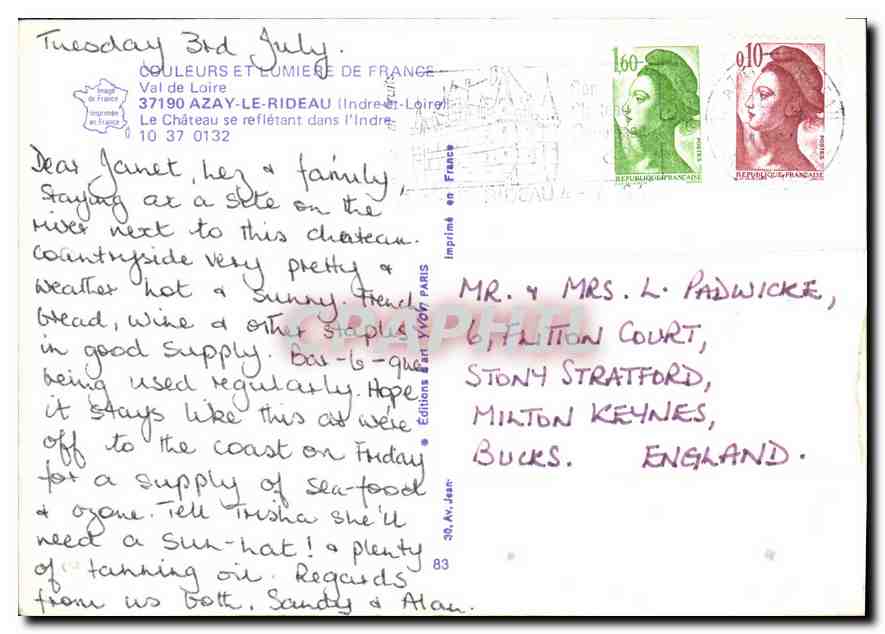 Tuesday 3rd July.
COULEURS ET LUMIERE DE FRANCE
Val de Loire
37190 AZAY-LE-RIDEAU (Indre-et-Loire)
Le Château se reflétant dans l'Indre
10 37 0132
Image de France
Imprimée en France
Dear Janet, Lez & family,
Staying at a site on the
river next to this chateau.
Countryside very pretty &
weather hot & sunny. French
bread, wine & other staples
in good supply. Bar-b-que
being used regularly. Hope
it stays like this as we're
off to the coast on Friday
for a supply of sea-food
& ozone. Tell Trisha she'll
need a sun-hat! & plenty
of tanning oil. Regards
from us both, Sandy & Alan.
Imprimé en France
Éditions d'art YVON PARIS
30, Av. Jean-
83
1,60
POSTES
REPUBLIQUE FRANÇAISE
0,10
POSTES
REPUBLIQUE FRANÇAISE
RIDEAU
MR. & MRS. L. PADWICKE,
6, FLITTON COURT,
STONY STRATFORD,
MILTON KEYNES,
BUCKS. ENGLAND.
CPAPHIL